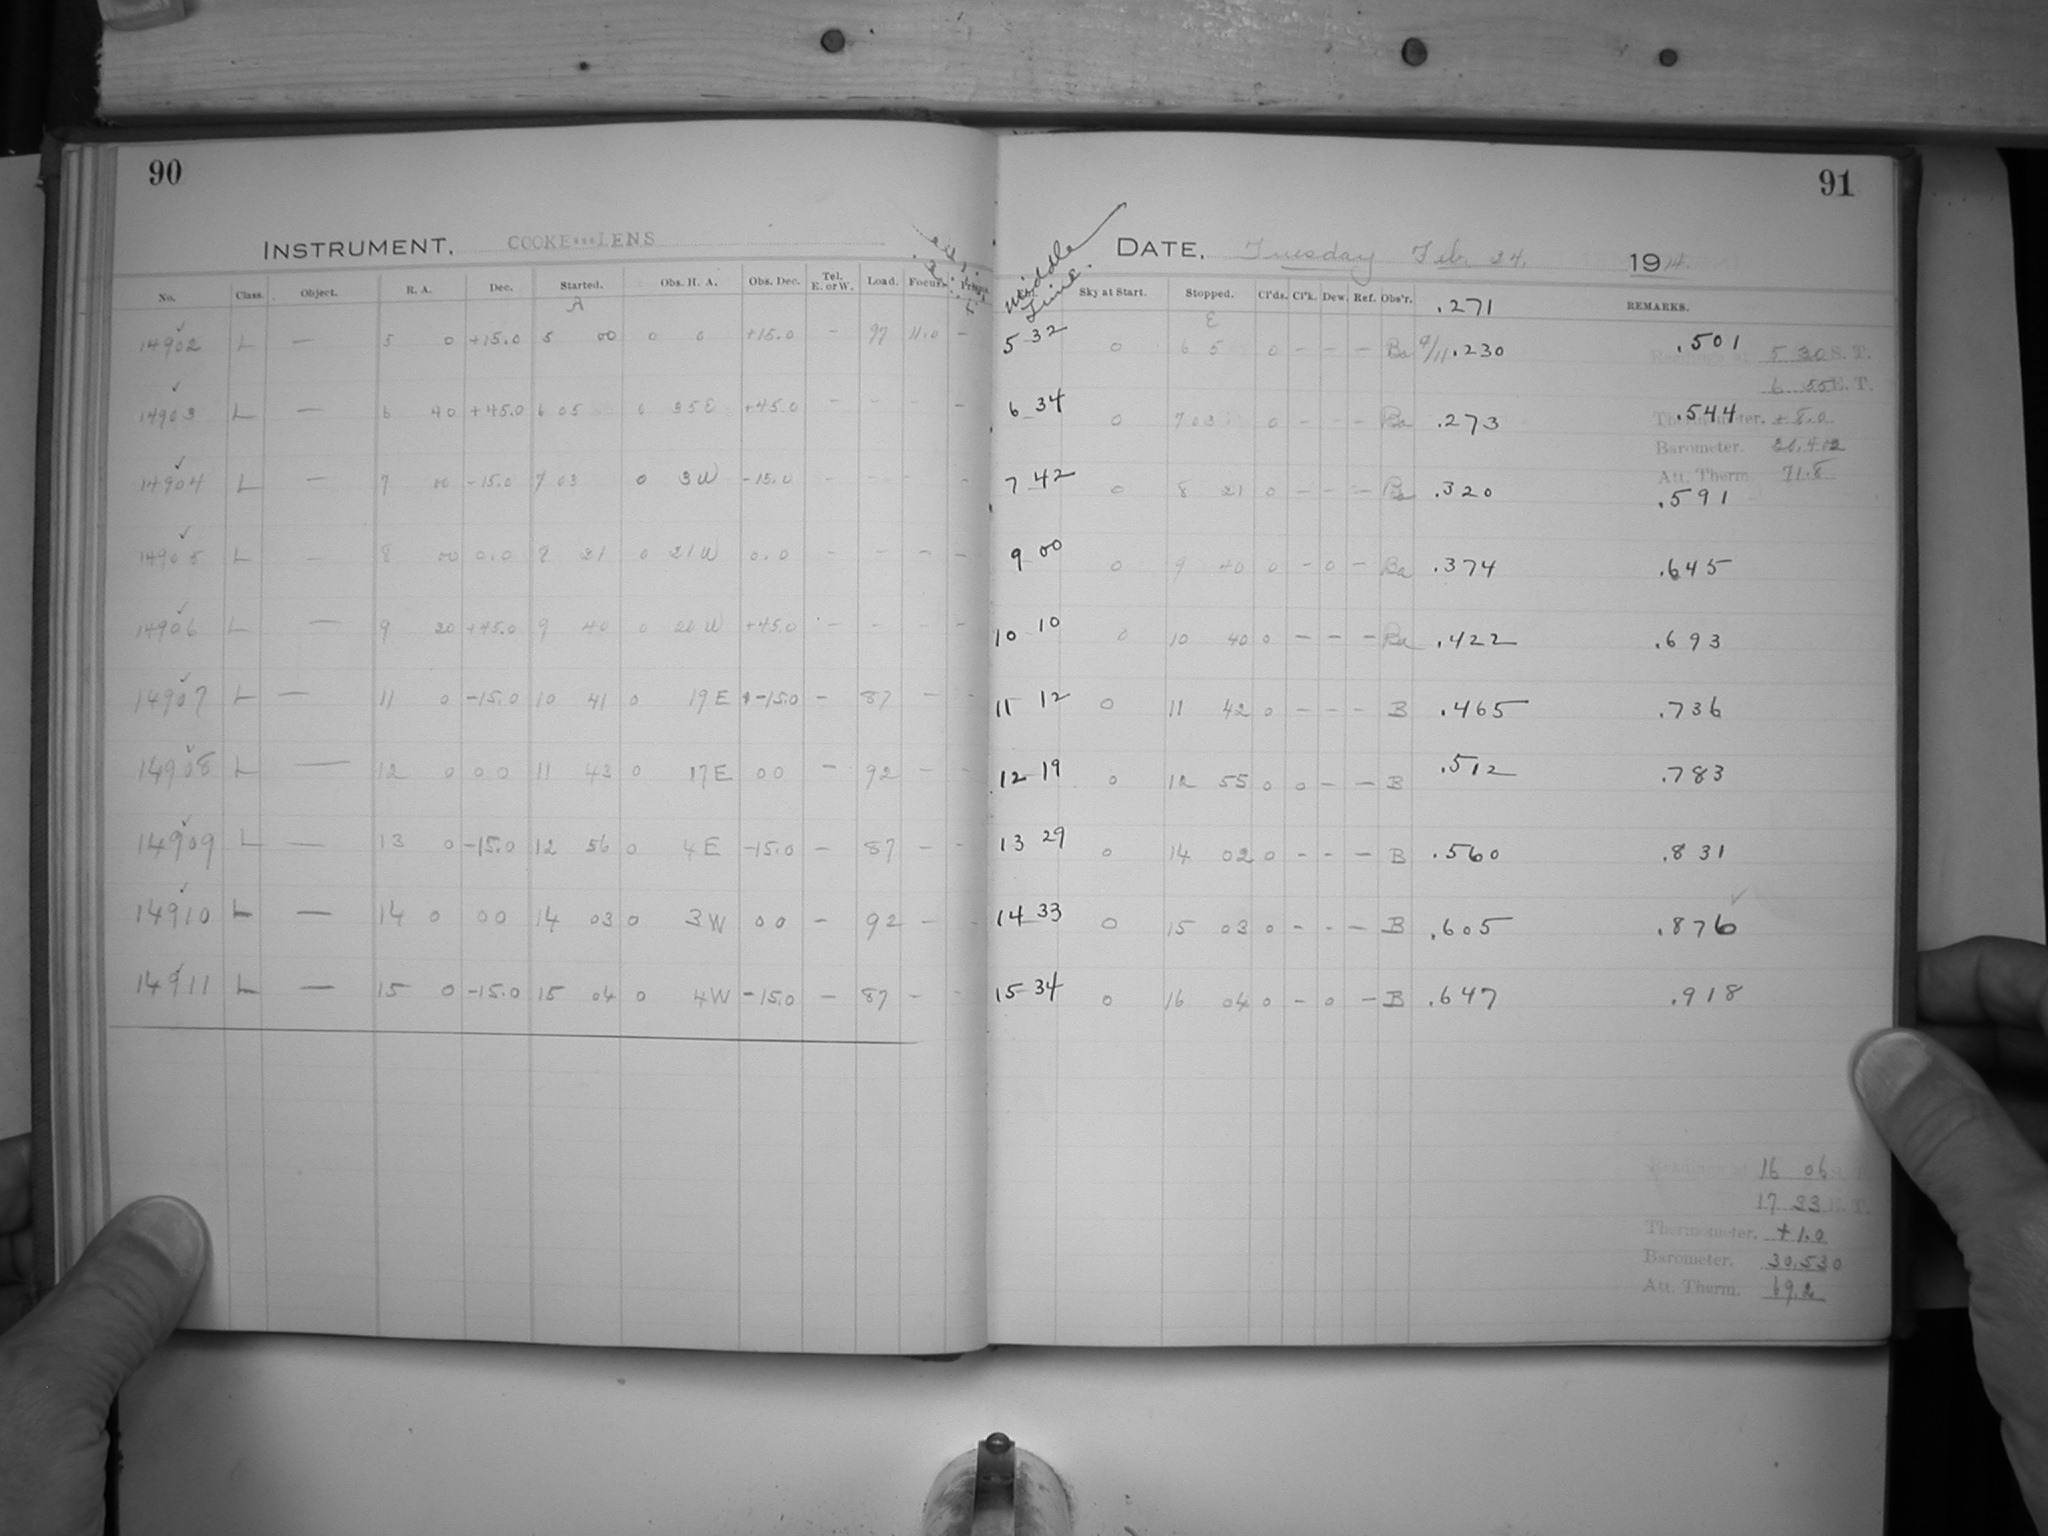 90
91
INSTRUMENT. COOKE LENS
DATE. Tuesday Feb. 24. 1914.
Middle Time.
No. Class. Object. R. A. Dec. Started. Obs. H. A. Obs. Dec. Tel. E. or W. Load. Focus. Sky at Start. Stopped. Cl'ds. Cl'k. Dew. Ref. Obs'r. .271 REMARKS.
A E
14902 L — 5 0 +15.0 5 00 0 0 +15.0 - 97 11.0 - 5 32 0 6 5 0 - - - Ba .230 .501
Readings at 5 30 S. T.
6 55 E. T.
14903 L — 6 40 +45.0 6 05 0 35E +45.0 - - - - 6 34 0 7 03 0 - - - Ba .273 .544
Thermometer. +8.0
Barometer.
Att. Therm. 71.8
14904 L — 7 00 -15.0 7 03 0 3W -15.0 - - - - 7 42 0 8 21 0 - - - Ba .320 .591
14905 L — 8 00 0.0 8 21 0 21W 0.0 - - - - 9 00 0 9 40 0 - 0 - Ba .374 .645
14906 L — 9 20 +45.0 9 40 0 20W +45.0 - - - - 10 10 0 10 40 0 - - - Ba .422 .693
14907 L — 11 0 -15.0 10 41 0 19E -15.0 - 87 - - 11 12 0 11 42 0 - - - B .465 .736
14908 L — 12 0 00 11 43 0 17E 00 - 92 - - 12 19 0 12 55 0 0 - - B .512 .783
14909 L — 13 0 -15.0 12 56 0 4E -15.0 - 87 - - 13 29 0 14 02 0 - - - B .560 .831
14910 L — 14 0 00 14 03 0 3W 00 - 92 - - 14 33 0 15 03 0 - - - B .605 .876
14911 L — 15 0 -15.0 15 04 0 4W -15.0 - 87 - - 15 34 0 16 04 0 - 0 - B .647 .918
Readings at 16 06 S. T.
17 33 E. T.
Thermometer. +1.0
Barometer. 30.530
Att. Therm. 69.2